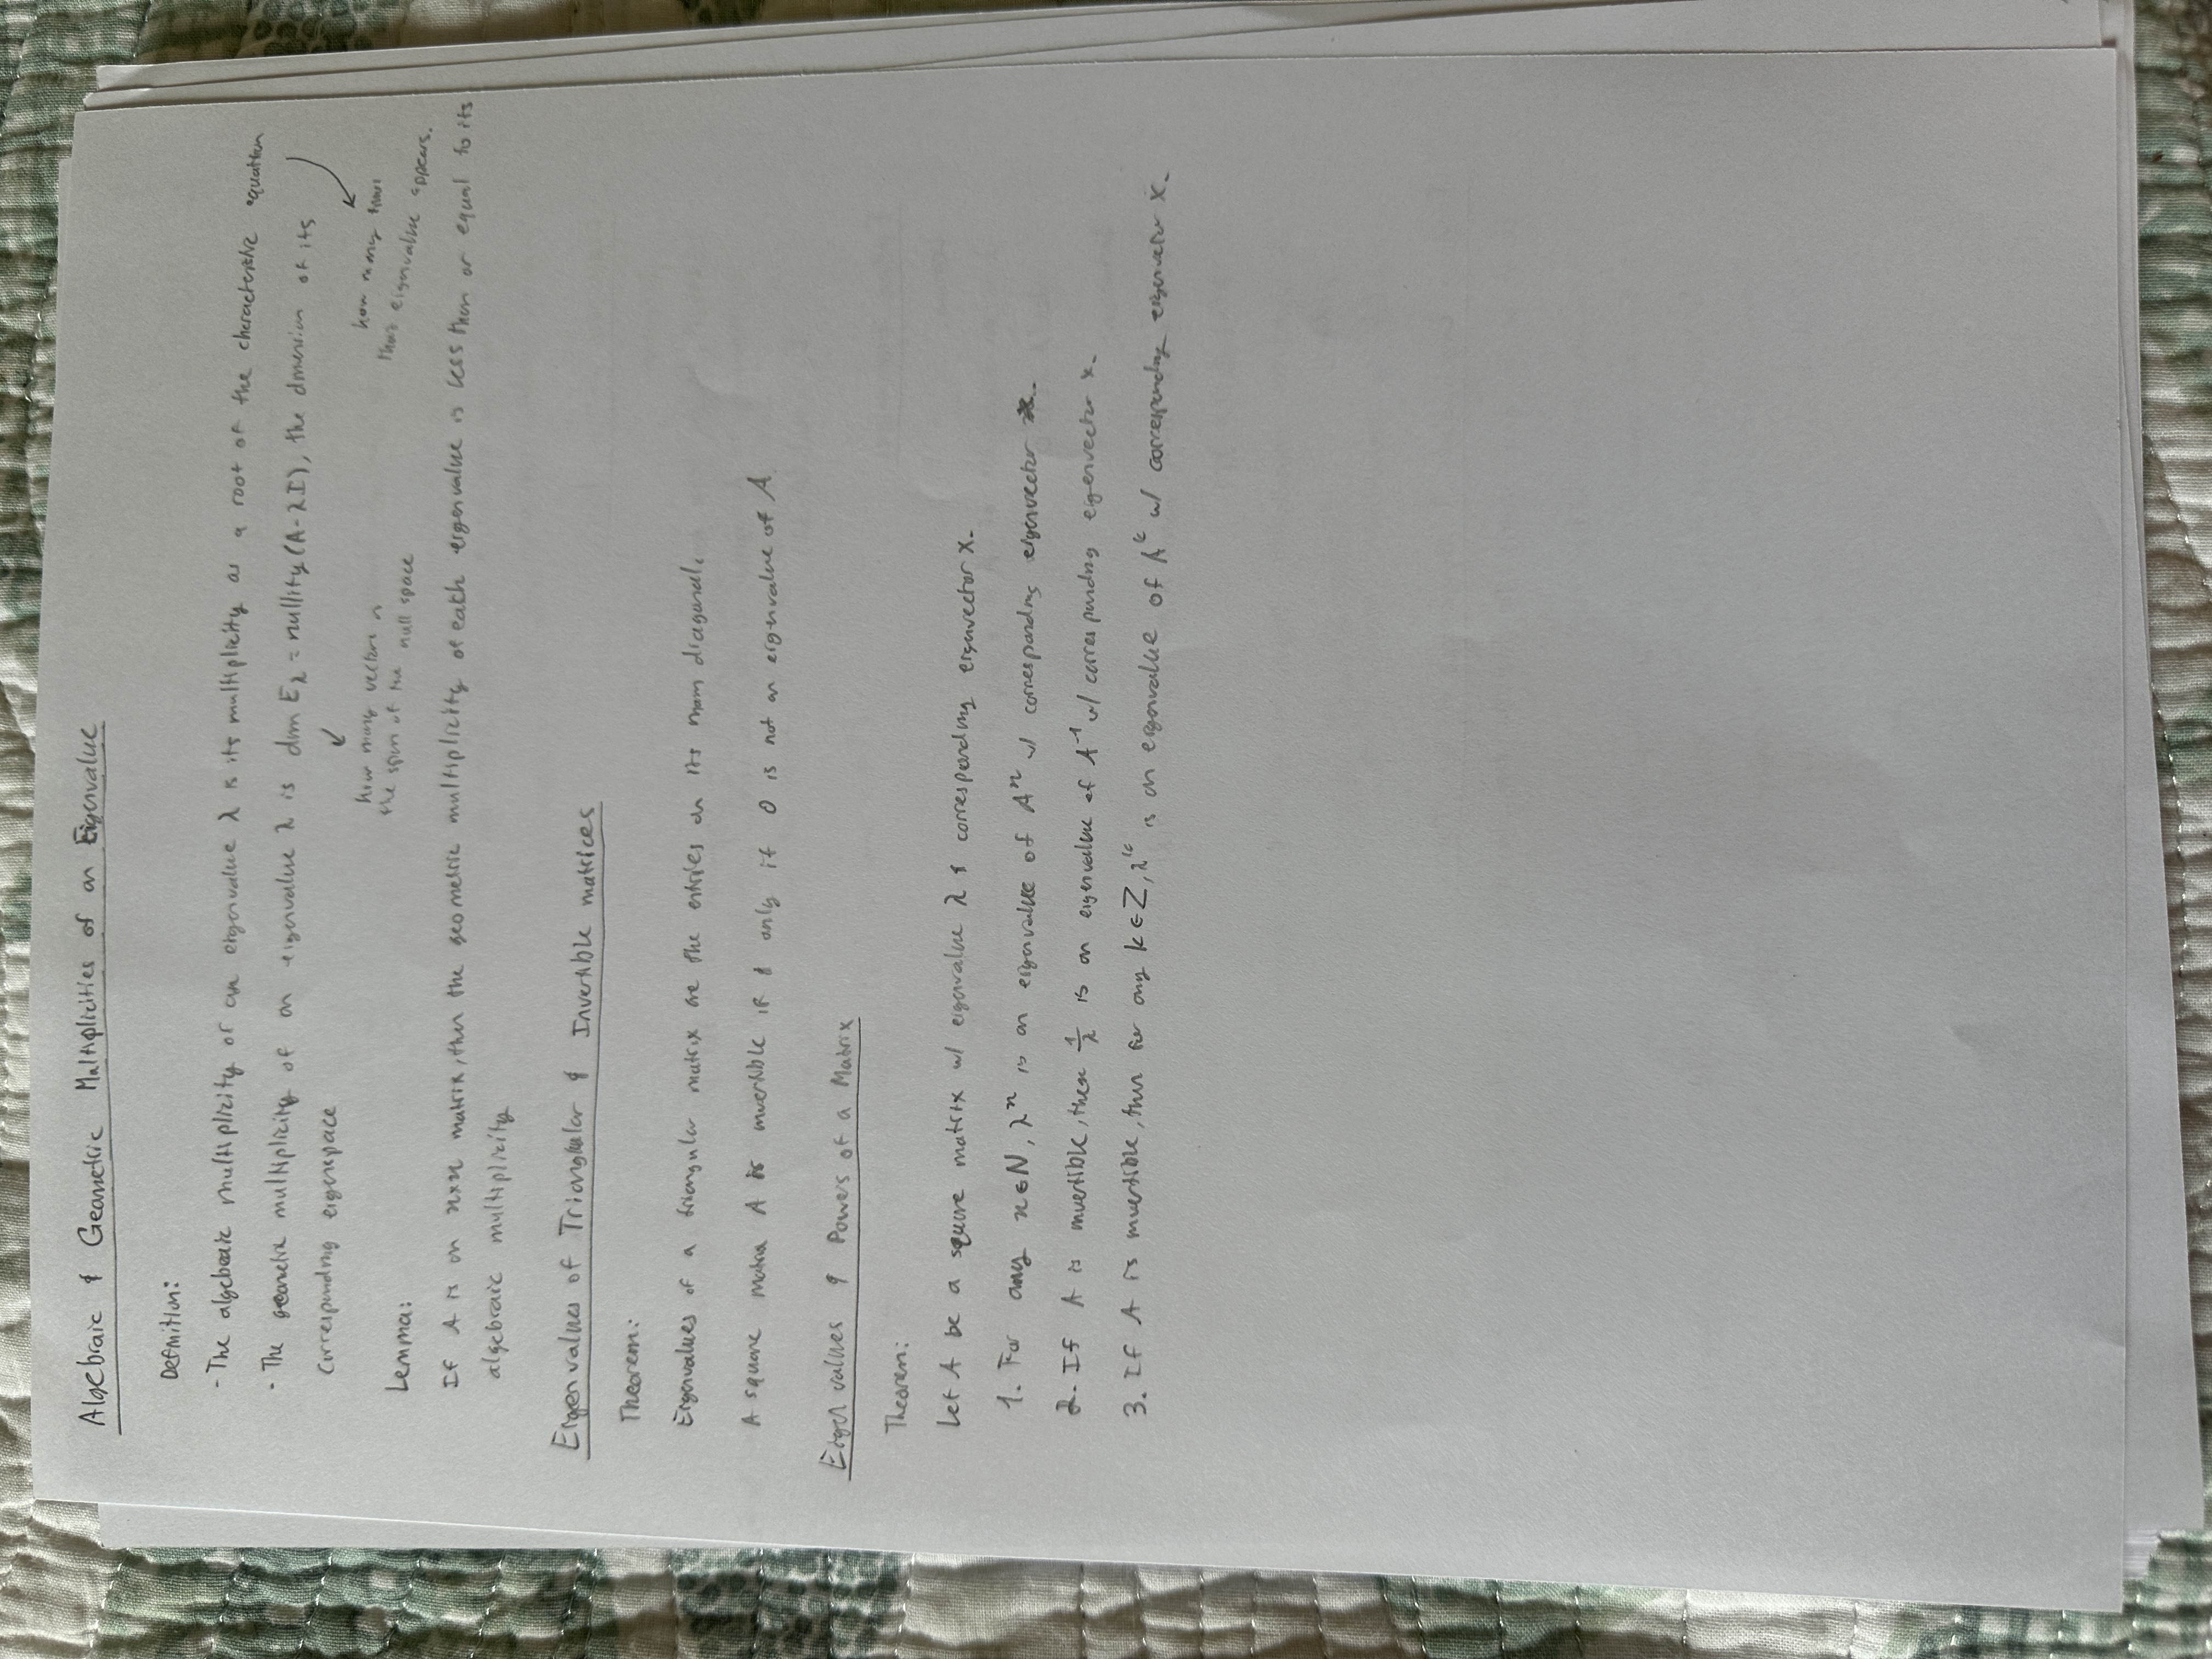 Algebraic & Geometric Multiplicities of an Eigenvalue
Definition:
- The algebraic multiplicity of an eigenvalue λ is its multiplicity as a root of the characteristic equation
- The geometric multiplicity of an eigenvalue λ is dim E_λ = nullity (A - λI), the dimension of its
corresponding eigenspace
how many vectors in
the span of the null space
how many times
that eigenvalue appears.
Lemma:
If A is an n×n matrix, then the geometric multiplicity of each eigenvalue is less than or equal to its
algebraic multiplicity
Eigenvalues of Triangular & Invertible matrices
Theorem:
Eigenvalues of a triangular matrix are the entries on its main diagonal.
A square matrix A is invertible if & only if 0 is not an eigenvalue of A.
Eigenvalues & Powers of a Matrix
Theorem:
Let A be a square matrix w/ eigenvalue λ & corresponding eigenvector x.
1. For any n∈N, λⁿ is an eigenvalue of Aⁿ w/ corresponding eigenvector x.
2. If A is invertible, then 1/λ is an eigenvalue of A⁻¹ w/ corresponding eigenvector x.
3. If A is invertible, then for any k∈Z, λᵏ is an eigenvalue of Aᵏ w/ corresponding eigenvector x.